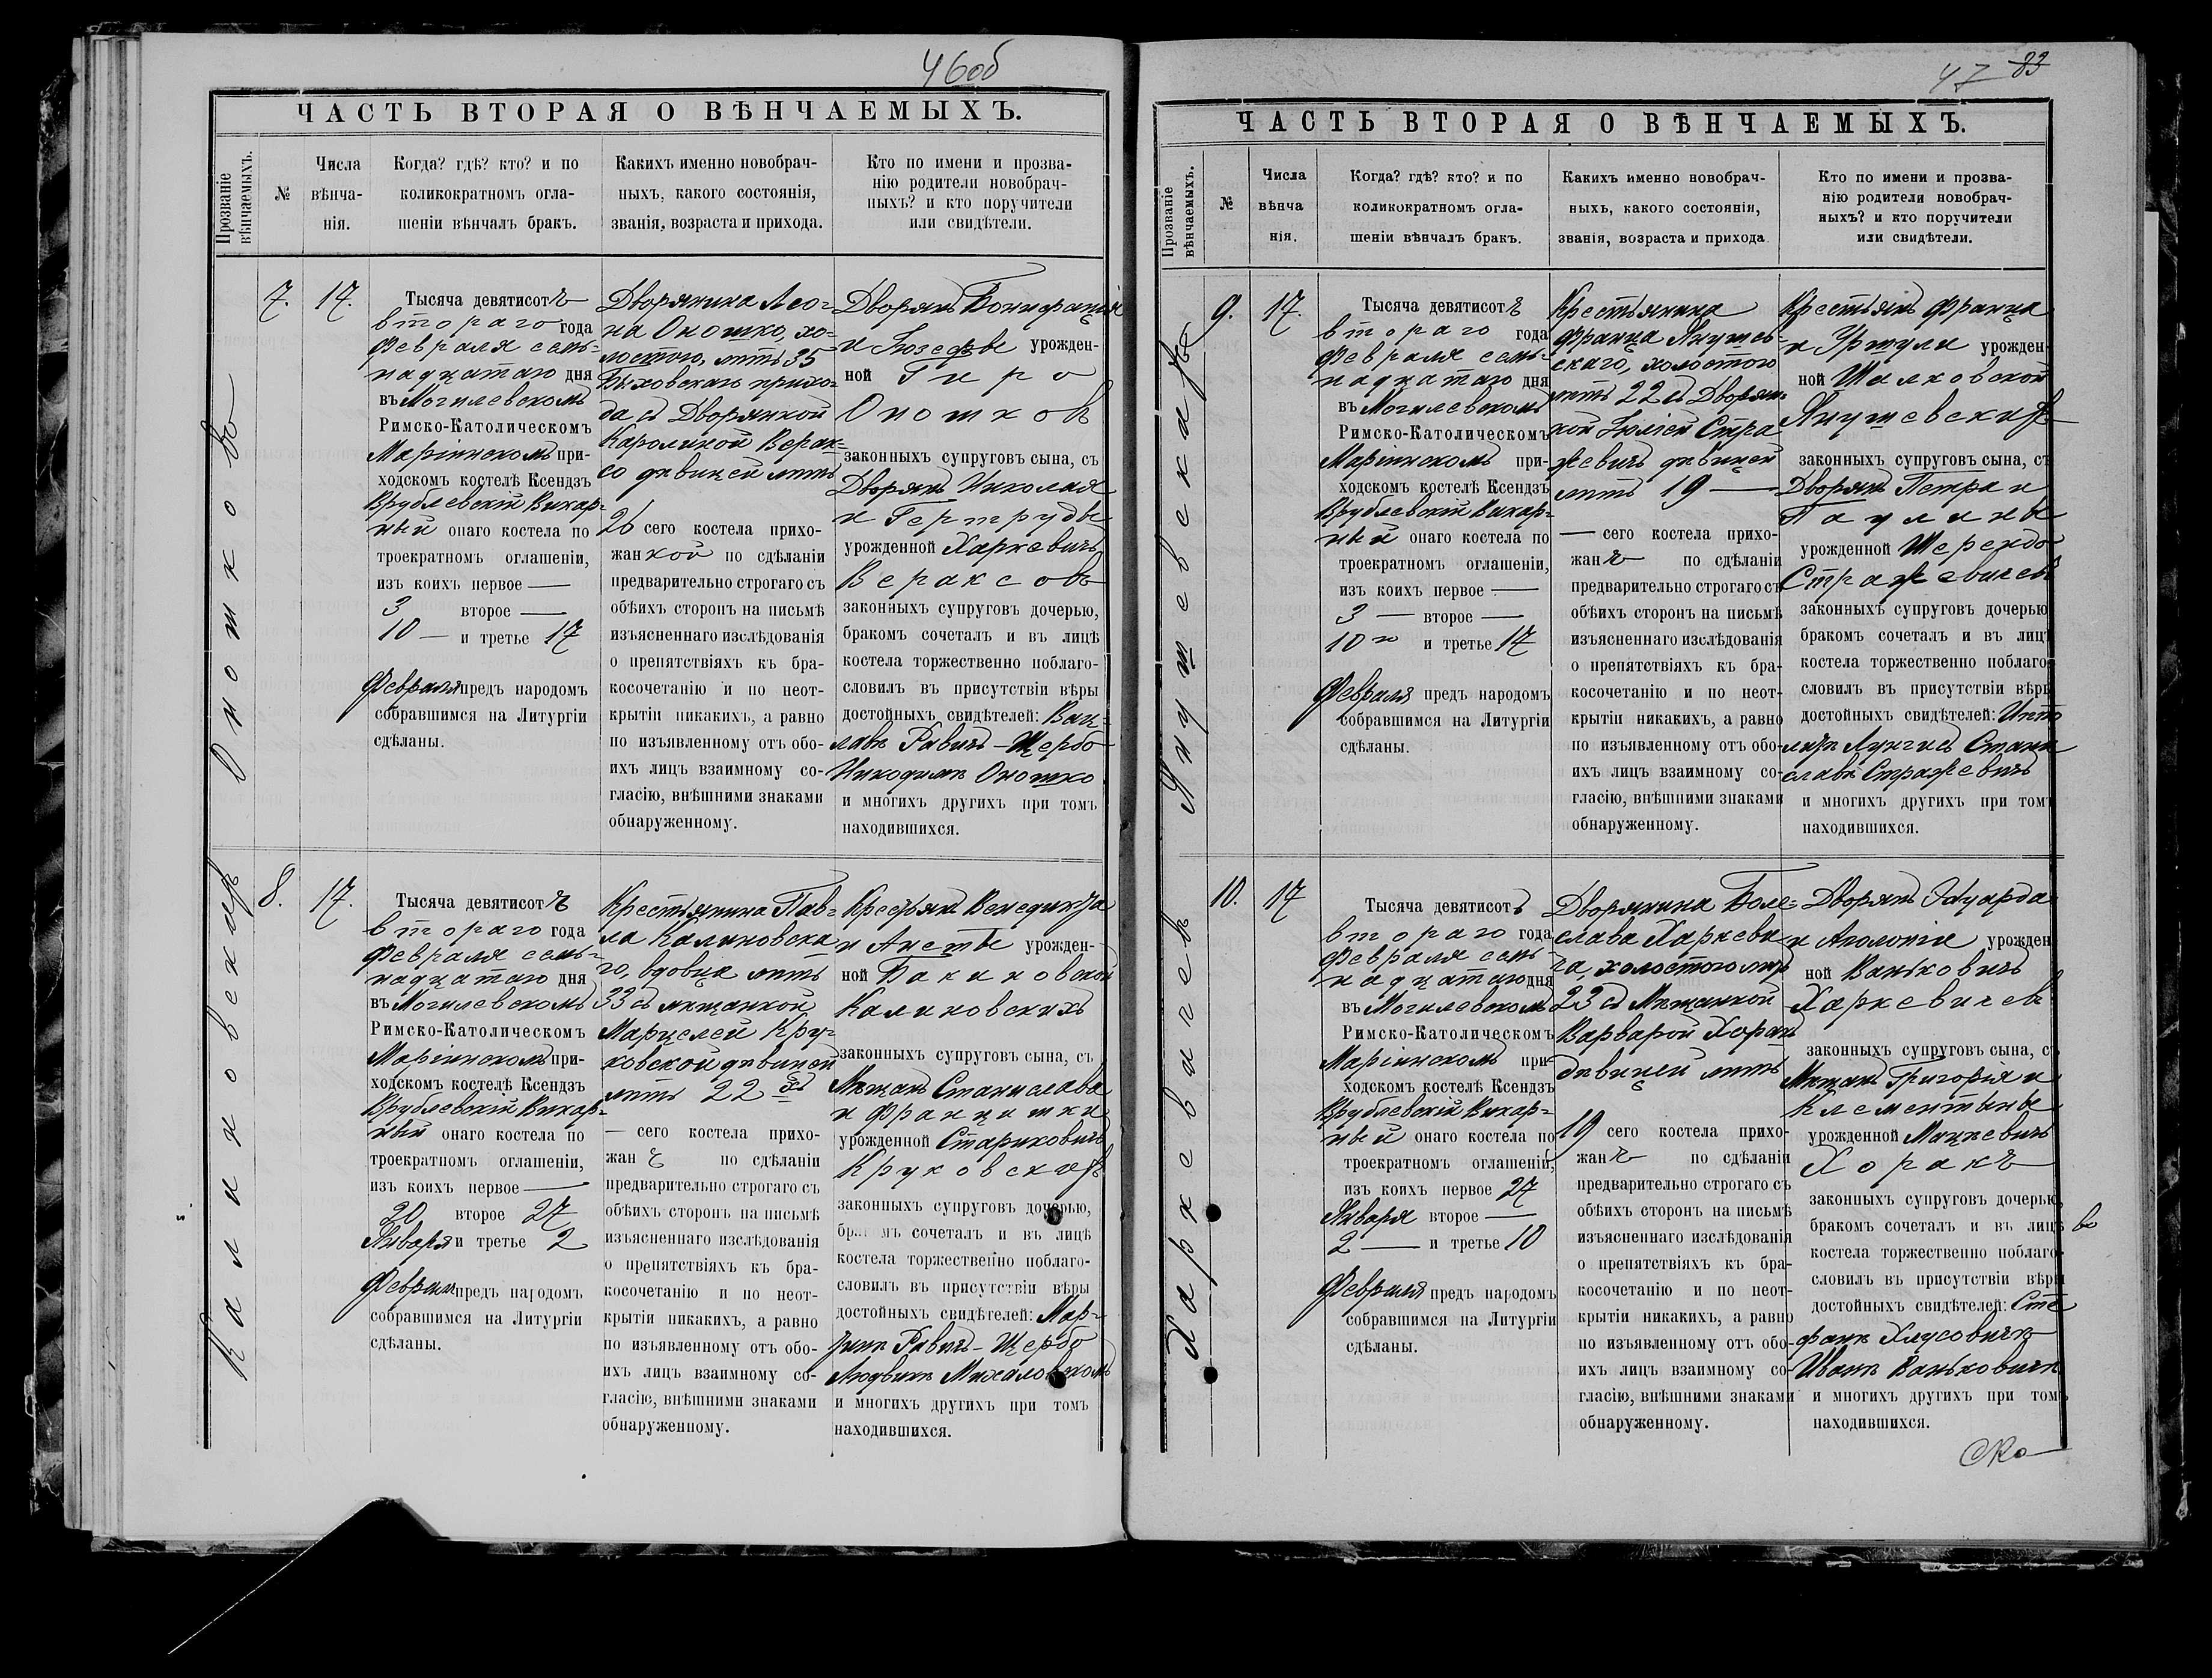 46об
ЧАСТЬ ВТОРАЯ О ВѢНЧАЕМЫХЪ.
Прозваніе вѣнчаемыхъ.
№
Числа вѣнча-нія.
Когда? гдѣ? кто? и по
коликократномъ огла-
шеніи вѣнчалъ бракъ.
Какихъ именно новобрач-
ныхъ, какого состоянія,
званія, возраста и прихода.
Кто по имени и прозва-
нію родители новобрач-
ныхъ? и кто поручители
или свидѣтели.
7.
17.
Тысяча девятисотъ
втораго года
Февраля семь-
надцатаго дня
въ Могилевскомъ
Римско-Католическомъ
Маріинскомъ при-
ходскомъ костелѣ Ксендзъ
Врублевскій Викар-
ный онаго костела по
троекратномъ оглашеніи,
изъ коихъ первое —
3 второе —
10 — и третье 17
Февраля предъ народомъ
собравшимся на Литургіи
сдѣланы.
Дворянина Лео-
на Оношко, хо-
лостого, лѣтъ 35
Быховскаго прихо-
да съ Дворянкой
Каролиной Верак-
со дѣвицей лѣтъ
26 сего костела прихо-
жанкой по сдѣланіи
предварительно строгаго съ
обѣихъ сторонъ на письмѣ
изъясненнаго изслѣдованія
о препятствіяхъ къ бра-
косочетанію и по неот-
крытіи никакихъ, а равно
по изъявленному отъ обо-
ихъ лицъ взаимному со-
гласію, внѣшними знаками
обнаруженному.
Дворянъ Бонифація
и Іозефы урожден-
ной Гиро
Оношковъ
законныхъ супруговъ сына, съ
Дворянъ Николая
и Гертруды
урожденной Харкевичъ
Вераксовъ
законныхъ супруговъ дочерью,
бракомъ сочеталъ и въ лицѣ
костела торжественно поблаго-
словилъ въ присутствіи вѣры
достойныхъ свидѣтелей: Вац-
лавѣ Равичъ-Щербо
Никодимѣ Оношко
и многихъ другихъ при томъ
находившихся.
8.
17.
Тысяча девятисотъ
втораго года
Февраля семь-
надцатаго дня
въ Могилевскомъ
Римско-Католическомъ
Маріинскомъ при-
ходскомъ костелѣ Ксендзъ
Врублевскій Викар-
ный онаго костела по
троекратномъ оглашеніи,
изъ коихъ первое —
20 второе 27
Января и третье 2
Февраля предъ народомъ
собравшимся на Литургіи
сдѣланы.
Калиновскихъ
Крестьянина Пав-
ла Калиновска
го, вдовца лѣтъ
33 съ мѣщанкой
Марцелей Кру-
ковской дѣвицей
лѣтъ 22
— сего костела прихо-
жанъ по сдѣланіи
предварительно строгаго съ
обѣихъ сторонъ на письмѣ
изъясненнаго изслѣдованія
о препятствіяхъ къ бра-
косочетанію и по неот-
крытіи никакихъ, а равно
по изъявленному отъ обо-
ихъ лицъ взаимному со-
гласію, внѣшними знаками
обнаруженному.
Крестьянъ Венедикта
и Анеты урожден-
ной Бакиновской
Калиновскихъ
законныхъ супруговъ сына, съ
Мѣщанъ Станислава
и Францишки
урожденной Стариковичъ
Круковскихъ
законныхъ супруговъ дочерью,
бракомъ сочеталъ и въ лицѣ
костела торжественно поблаго-
словилъ въ присутствіи вѣры
достойныхъ свидѣтелей: Мар-
тинѣ Равичъ-Щербо
Людвикѣ Михаловскомъ
и многихъ другихъ при томъ
находившихся.
47 83
ЧАСТЬ ВТОРАЯ О ВѢНЧАЕМЫХЪ.
Прозваніе вѣнчаемыхъ.
№
Числа вѣнча нія.
Когда? гдѣ? кто? и по
коликократномъ огла-
шеніи вѣнчалъ бракъ.
Какихъ именно новобрач-
ныхъ, какого состоянія,
званія, возраста и прихода
Кто по имени и прозва-
нію родители новобрач-
ныхъ? и кто поручители
или свидѣтели.
Янушевскихъ
9.
17.
Тысяча девятисотъ
втораго года
Февраля семь-
надцатаго дня
въ Могилевскомъ
Римско-Католическомъ
Маріинскомъ при-
ходскомъ костелѣ Ксендзъ
Врублевскій Викар-
ный онаго костела по
троекратномъ оглашеніи,
изъ коихъ первое —
3 — второе —
10 и третье 17
Февраля предъ народомъ
собравшимся на Литургіи
сдѣланы.
Крестьянина
Франца Янушев-
скаго, холостого
лѣтъ 22 съ Дворян-
кой Юліей Стра
жевичъ дѣвицей
лѣтъ 19 —
— сего костела прихо-
жанъ по сдѣланіи
предварительно строгаго съ
обѣихъ сторонъ на письмѣ
изъясненнаго изслѣдованія
о препятствіяхъ къ бра-
косочетанію и по неот-
крытіи никакихъ, а равно
по изъявленному отъ обо-
ихъ лицъ взаимному со-
гласію, внѣшними знаками
обнаруженному.
Крестьянъ Франца
и Уршули урожден
ной Шалковской
Янушевскихъ
законныхъ супруговъ сына, съ
Дворянъ Петра и
Паулины
урожденной Шерендо
Стражевичевъ
законныхъ супруговъ дочерью
бракомъ сочеталъ и въ лицѣ
костела торжественно поблаго
словилъ въ присутствіи вѣры
достойныхъ свидѣтелей: Иппо
литѣ Лунгисъ Стани
славѣ Стражевичъ
и многихъ другихъ при томъ
находившихся.
Харкевичевъ
10.
17
Тысяча девятисотъ
втораго года
Февраля семь-
надцатаго дня
въ Могилевскомъ
Римско-Католическомъ
Маріинскомъ при-
ходскомъ костелѣ Ксендзъ
Врублевскій Викар-
ный онаго костела по
троекратномъ оглашеніи,
изъ коихъ первое 27
Января второе —
2 — и третье 10
Февраля предъ народомъ
собравшимся на Литургіи
сдѣланы.
Дворянина Боле-
слава Харкеви
ча, холостого лѣтъ
23 съ Мѣщанкой
Варварой Хоракъ
дѣвицей лѣтъ
19 сего костела прихо-
жанъ по сдѣланіи
предварительно строгаго съ
обѣихъ сторонъ на письмѣ
изъясненнаго изслѣдованія
о препятствіяхъ къ бра-
косочетанію и по неот-
крытіи никакихъ, а равно
по изъявленному отъ обо-
ихъ лицъ взаимному со-
гласію, внѣшними знаками
обнаруженному.
Дворянъ Эдуарда
и Аполоніи урожден
ной Ваньковичъ
Харкевичевъ
законныхъ супруговъ сына, съ
Мѣщанъ Григорія и
Клементыны
урожденной Мацкевичъ
Хоракъ
законныхъ супруговъ дочерью,
бракомъ сочеталъ и въ лицѣ
костела торжественно поблаго-
словилъ въ присутствіи вѣры
достойныхъ свидѣтелей: Сте
фанѣ Хлусовичъ
Иванѣ Ваньковичѣ
и многихъ другихъ при томъ
находившихся.